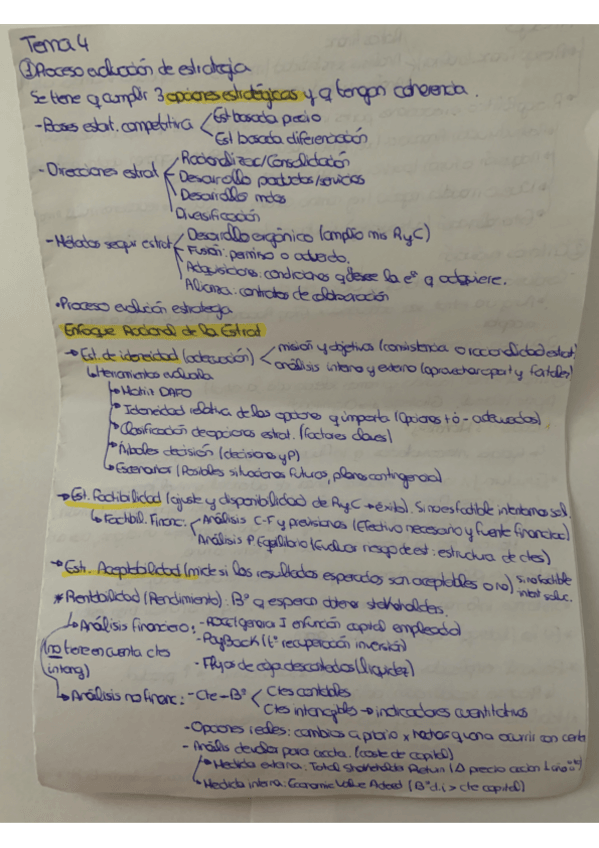 Tema 4
① Proceso evaluación de estrategia
Se tiene q cumplir 3 opciones estratégicas y q tengan coherencia.
- Bases estrat. competitiva < Est basada precio
Est basada diferenciación
- Direcciones estrat < Racionalizac/Consolidación
Desarrollo productos/servicios
Desarrollo mdos
Diversificación
- Métodos seguir estrat < Desarrollo orgánico (amplío mis RyC)
Fusión: permiso o acuerdo.
Adquisiciones: condiciones q desee la eª q adquiere.
Alianza: contratos de colaboración
• Proceso evalución estrategia
Enfoque Racional de la Estrat
→ Est. de idoneidad (adecuación) < misión y objetivos (consistencia o racionalidad estrat)
análisis interno y externo (aprovechar oport y fortalez)
↳ Herramientas evaluada
→ Matriz DAFO
→ Idoneidad relativa de las opciones q importa (Opciones + ó - adecuadas)
→ Clasificación de opciones estrat. (Factores claves)
→ Árboles decisión (decisiones y P)
→ Escenarios (Posibles situaciones futuras, planes contingencia)
→ Est. Factibilidad (ajuste y disponibilidad de RyC → éxito). Si no es factible intentamos sol.
↳ Factibil. Financ. < Análisis C-F y previsiones (Efectivo necesario y fuente financiac)
Análisis P. Equilibrio (Evaluar riesgo de est: estructura de ctes)
→ Estr. Aceptabilidad (mide si los resultados esperados son aceptables o no) si no factible intent soluc.
* Rentabilidad (Rendimiento): Bº q esperan obtener stakeholders.
↳ Análisis financiero: - ROCE (genera I en función capital empleado)
(no tiene en cuenta ctes intang)
- PayBack (tº recuperación inversión)
- Flujos de caja descontados (liquidez)
↳ Análisis no financ: - Cte - Bº < Ctes contables
Ctes intangibles → indicadores cuantitativos
- Opciones reales: cambios a priori x hechos q van a ocurrir con certe
- Análisis de valor para accta. (coste de capital)
→ Medida externa: Total Shareholders Return (Δ precio accion 1 año
→ Medida interna: Economic Value Added (Bº d.i > cte capital)